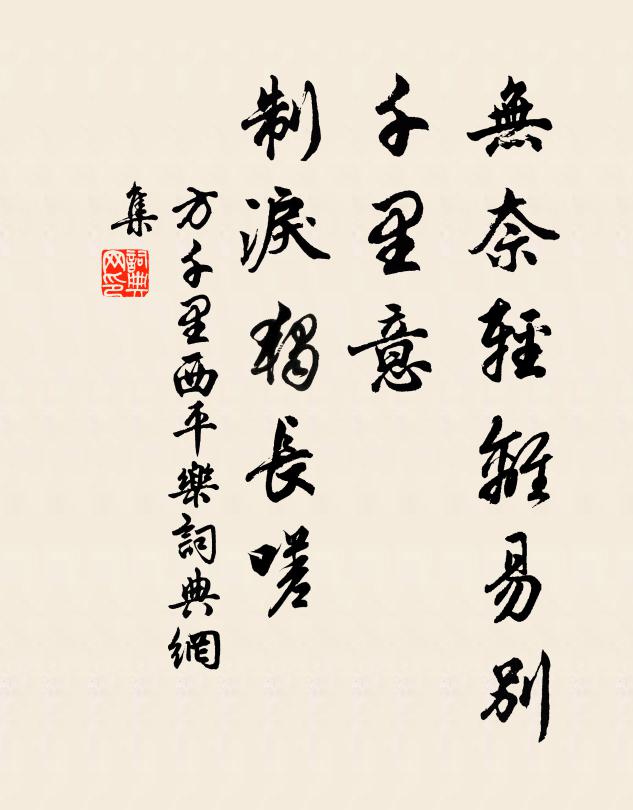 無奈輕離易別
千里意
制淚獨長嗟
方千里西平樂詞典網
集
詞典网印